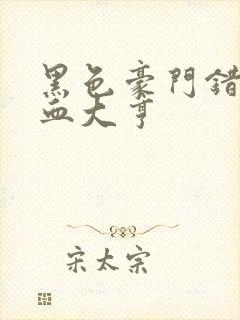 黑色豪門錯
血大亨
宋太宗